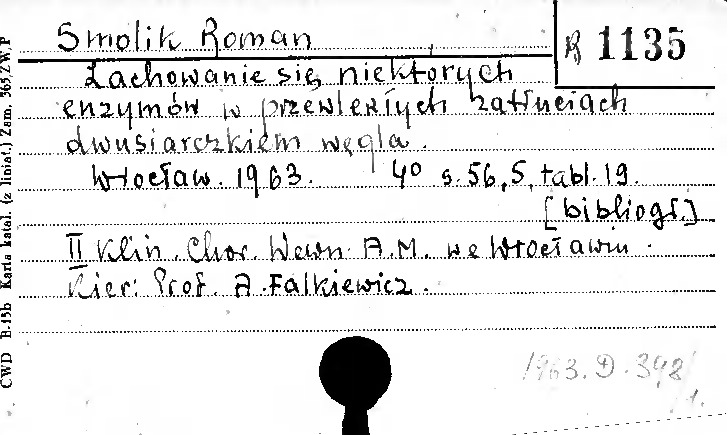 Smolik Roman
R 1135
Zachowanie się niektórych
enzymów w przewlekłych zatruciach
dwusiarczkiem węgla.
Wrocław. 1963. 4° s. 56, 5, tabl. 19.
[bibliogr.]
II Klin. Chor. Wewn. A.M. we Wrocławiu.
Kier: Prof. A. Falkiewicz.
1963. D. 398
/1.
CWD B.15b Karta katal. (z liniat.) Zam. 365/ZW/P